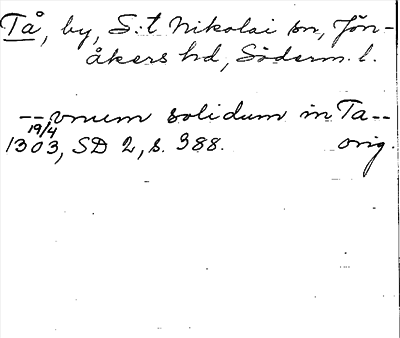 Tå, by, S:t Nikolai sn, Jön-
åkers hd, Söderm. l.
-- vnum solidum in Ta--
19/4
1303, SD 2, s. 388. orig.